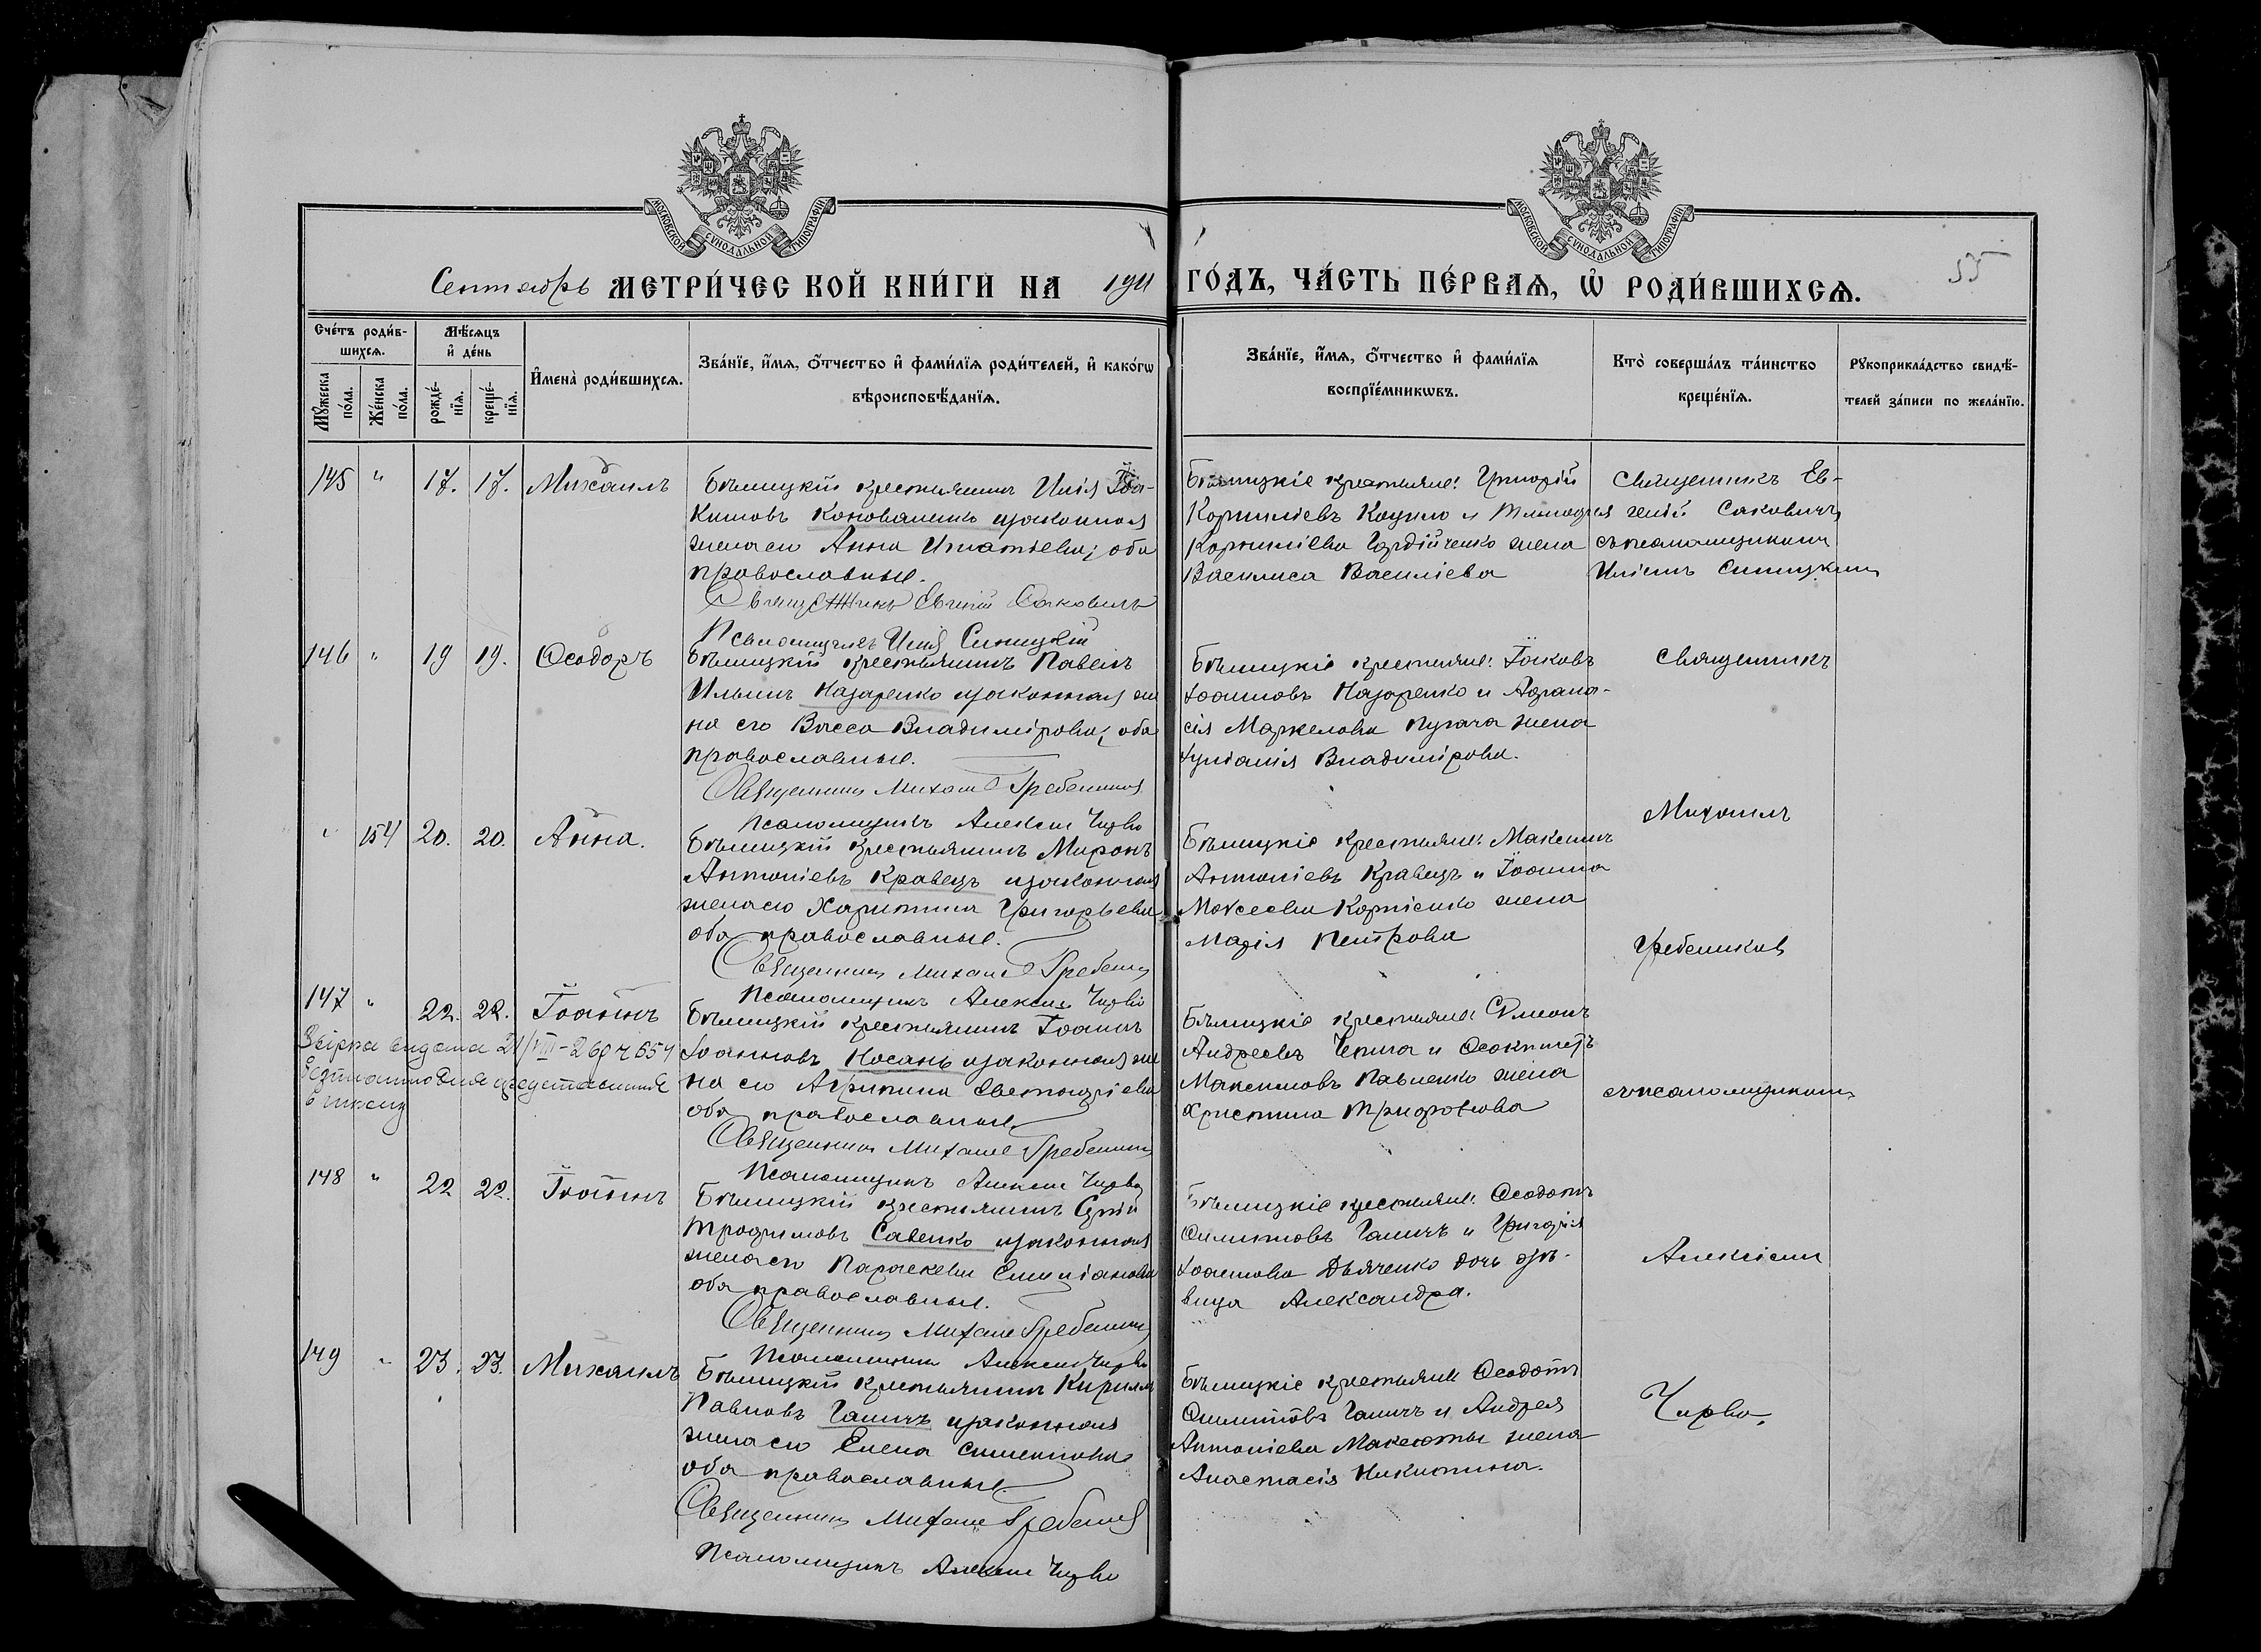 МОСКОВСКОЙ СУНОДАЛЬНОЙ ТИПОГРАФІИ
МОСКОВСКОЙ СУНОДАЛЬНОЙ ТИПОГРАФІИ
Сентябрь МЕТРИ́ЧЕСКОЙ КНИ́ГИ НА 1911 ГО́ДЪ, ЧА́СТЬ ПЕ́РВАѦ, Ѡ҆ РОДИ́ВШИХСѦ. 55
Сче́тъ роди́в-
шихсѧ.
Мꙋ́жеска по́ла.
Же́нска по́ла.
Мѣ́сѧцъ
и҆ де́нь
рожде́-
нїѧ.
креще́-
нїѧ.
И҆мена̀ роди́вшихсѧ.
Зва́нїе, и҆́мѧ, ѻ҆́тчество и҆ фами́лїѧ роди́телей, и҆ како́гѡ
вѣроисповѣ́данїѧ.
Зва́нїе, и҆́мѧ, ѻ҆́тчество и҆ фами́лїѧ
воспрїе́мникѡвъ.
Кто̀ соверша́лъ та́инство
креще́нїѧ.
Рꙋкоприкла́дство свидѣ́-
телей за́писи по жела́нїю.
145 " 17. 17. Михаилъ
Бѣлицкій крестьянинъ Илія Іоа-
кимовъ Коноваленко и законная
жена его Анна Игнатьева; оба
православные.
Священникъ Евгеній Саковичъ
Псаломщикъ Илія Синицкій
Бѣлицкіе крестьяне: Григорій
Корниліевъ Коцило и
Корниліева Гордійченко жена
Василиса Василіева
Священникъ Ев-
геній Саковичъ
съ псаломщикомъ
Иліемъ Синицкимъ
146 " 19 19. Ѳеодоръ
Бѣлицкій крестьянинъ Павелъ
Ильинъ Назаренко и законная же
на его Васса Владимірова; оба
православные.
Священникъ Михаилъ Гребениковъ
Псаломщикъ Алексій Чирво
Бѣлицкіе крестьяне: Іаковъ
Іоанновъ Назаренко и Афана-
сія Маркелова Пугача жена
Іуліанія Владимірова.
Священникъ
" 154 20. 20. Анна.
Бѣлицкій крестьянинъ Миронъ
Антоніевъ Кравецъ и законная
жена его Харитина Григорьева
оба православные.
Священникъ Михаилъ Гребениковъ
Псаломщикъ Алексій Чирво
Бѣлицкіе крестьяне: Максимъ
Антоніевъ Кравецъ и Іоанна
Моѵсеева Корніенко жена
Марія Петрова
Михаилъ
Гребениковъ
147 " 22. 22. Іоаннъ
Бѣлицкій крестьянинъ Іоаннъ
Іоанновъ Носань и законная же
на его Агрипина
оба православные.
Священникъ Михаилъ Гребениковъ
Псаломщикъ Алексій Чирво
Бѣлицкіе крестьяне Сѵмеонъ
Андреевъ Чепига и Ѳеоктистъ
Максимовъ Павленко жена
Христина Трифонова
съ псаломщикомъ
148 " 22 22. Іоаннъ
Бѣлицкій крестьянинъ Сергій
Трофимовъ Савенко и законная
жена его Параскева Емиліанова
оба православные.
Священникъ Михаилъ Гребениковъ
Псаломщикъ Алексій Чирво
Бѣлицкіе крестьяне: Ѳеодотъ
Филиповъ Галичъ и Григорія
Іоаннова Дьяченко дочь дѣ-
вица Александра.
Алексіемъ
149 " 23. 23. Михаилъ
Бѣлицкій крестьянинъ Кириллъ
Павловъ Галичъ и законная
жена его Елена Симеонова
оба православные.
Священникъ Михаилъ Гребениковъ
Псаломщикъ Алексій Чирво
Бѣлицкіе крестьяне Ѳеодотъ
Филиповъ Галичъ и Андрея
Антоніева Макеюты жена
Анастасія Никитина.
Чирво.